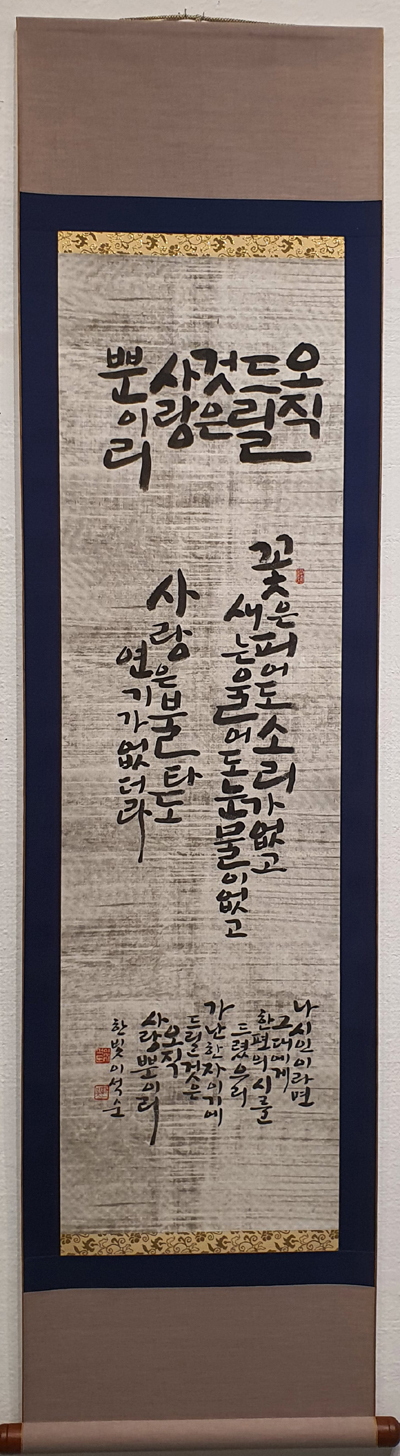 오직
드릴
것은
사랑
뿐이리
꽃은피어도소리가없고
새는울어도눈물이없고
사랑은불타도
연기가없더라
나시인이라면
그대에게
한편의시를
드렸으리
가난한자이기에
드릴것은
오직
사랑뿐이리
한빛이석순